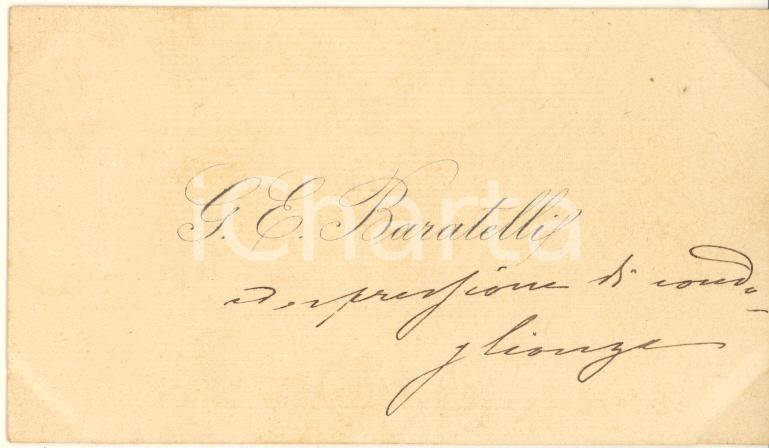 G. E. Baratelli
ad espressione di condo-
glianze
iCharta